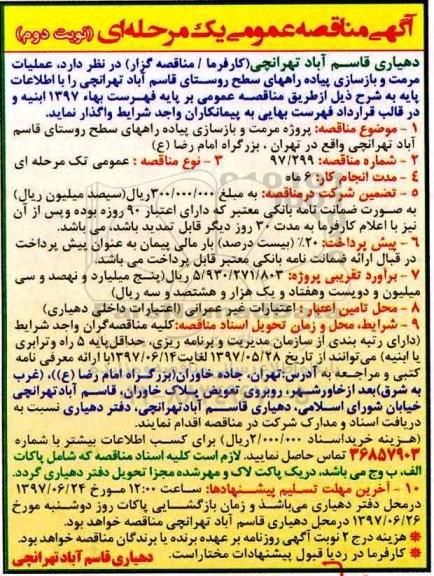 آگهی مناقصه عمومی یک مرحله‌ای (نوبت دوم)
دهیاری قاسم آباد تهرانچی(کارفرما / مناقصه گزار) در نظر دارد، عملیات
مرمت و بازسازی پیاده راههای سطح روستای قاسم آباد تهرانچی را با اطلاعات
پایه به شرح ذیل ازطریق مناقصه عمومی بر پایه فهرست بهاء ۱۳۹۷ ابنیه و
در قالب قرارداد فهرست بهایی به پیمانکاران واجد شرایط واگذار نماید.
۱ - موضوع مناقصه: پروژه مرمت و بازسازی پیاده راههای سطح روستای قاسم
آباد تهرانچی واقع در تهران ، بزرگراه امام رضا (ع)
۲ - شماره مناقصه: ۹۷/۲۹۹ ۳ - نوع مناقصه : عمومی تک مرحله ای
۴ - مدت انجام کار: ۶ ماه
۵ - تضمین شرکت درمناقصه: به مبلغ ۳۰۰/۰۰۰/۰۰۰ریال(سیصد میلیون ریال)
به صورت ضمانت نامه بانکی معتبر که دارای اعتبار ۹۰ روزه بوده و پس از آن
نیز با اعلام کارفرما به مدت ۳۰ روز دیگر قابل تمدید باشد، می باشد.
۶ - پیش پرداخت: ۲۰٪ (بیست درصد) بار مالی پیمان به عنوان پیش پرداخت
در قبال ارائه ضمانت نامه بانکی معتبر قابل پرداخت می باشد.
۷ - برآورد تقریبی پروژه: ۵/۹۳۰/۲۷۱/۸۰۳ ریال(پنج میلیارد و نهصد و سی
میلیون و دویست وهفتاد و یک هزار و هشتصد و سه ریال)
۸ - محل تامین اعتبار : اعتبارات غیر عمرانی (اعتبارات داخلی دهیاری)
۹ - شرایط، محل و زمان تحویل اسناد مناقصه:کلیه مناقصه‌گران واجد شرایط
(دارای رتبه بندی از سازمان مدیریت و برنامه ریزی، حداقل‌پایه ۵ راه وترابری
یا ابنیه) می‌توانند از تاریخ ۱۳۹۷/۰۵/۲۸ لغایت۱۳۹۷/۰۶/۱۴با ارائه معرفی نامه
کتبی و مراجعه به آدرس:تهران، جاده خاوران(بزرگراه امام رضا (ع))، (غرب
به شرق)بعدازخاورشهر، روبروی تعویض پلاک خاوران، قاسم آبادتهرانچی
خیابان شورای اسلامی، دهیاری قاسم آبادتهرانچی، دفتر دهیاری نسبت به
دریافت اسناد و مدارک شرکت در مناقصه اقدام نمایند.
(هزینه خریداسناد ۲/۰۰۰/۰۰۰ریال) برای کسب اطلاعات بیشتر با شماره
۳۶۸۵۷۹۰۳ تماس حاصل نمایید. لازم است کلیه اسناد مناقصه که شامل پاکات
الف، ب وج می باشد، دریک پاکت لاک و مهرشده مجزا تحویل دفتر دهیاری گردد.
۱۰ - آخرین مهلت تسلیم پیشنهادها: ساعت ۱۲:۰۰ مورخ ۱۳۹۷/۰۶/۲۴
درمحل دفتر دهیاری می‌باشد و زمان بازگشایی پاکات روز دوشنبه مورخ
۱۳۹۷/۰۶/۲۶ درمحل دهیاری قاسم آباد تهرانچی مناقصه خواهد بود.
* هزینه درج ۲ نوبت آگهی روزنامه بر عهده برنده یا برندگان مناقصه خواهد بود.
* کارفرما در ردیا قبول پیشنهادات مختاراست. دهیاری قاسم آباد تهرانچی